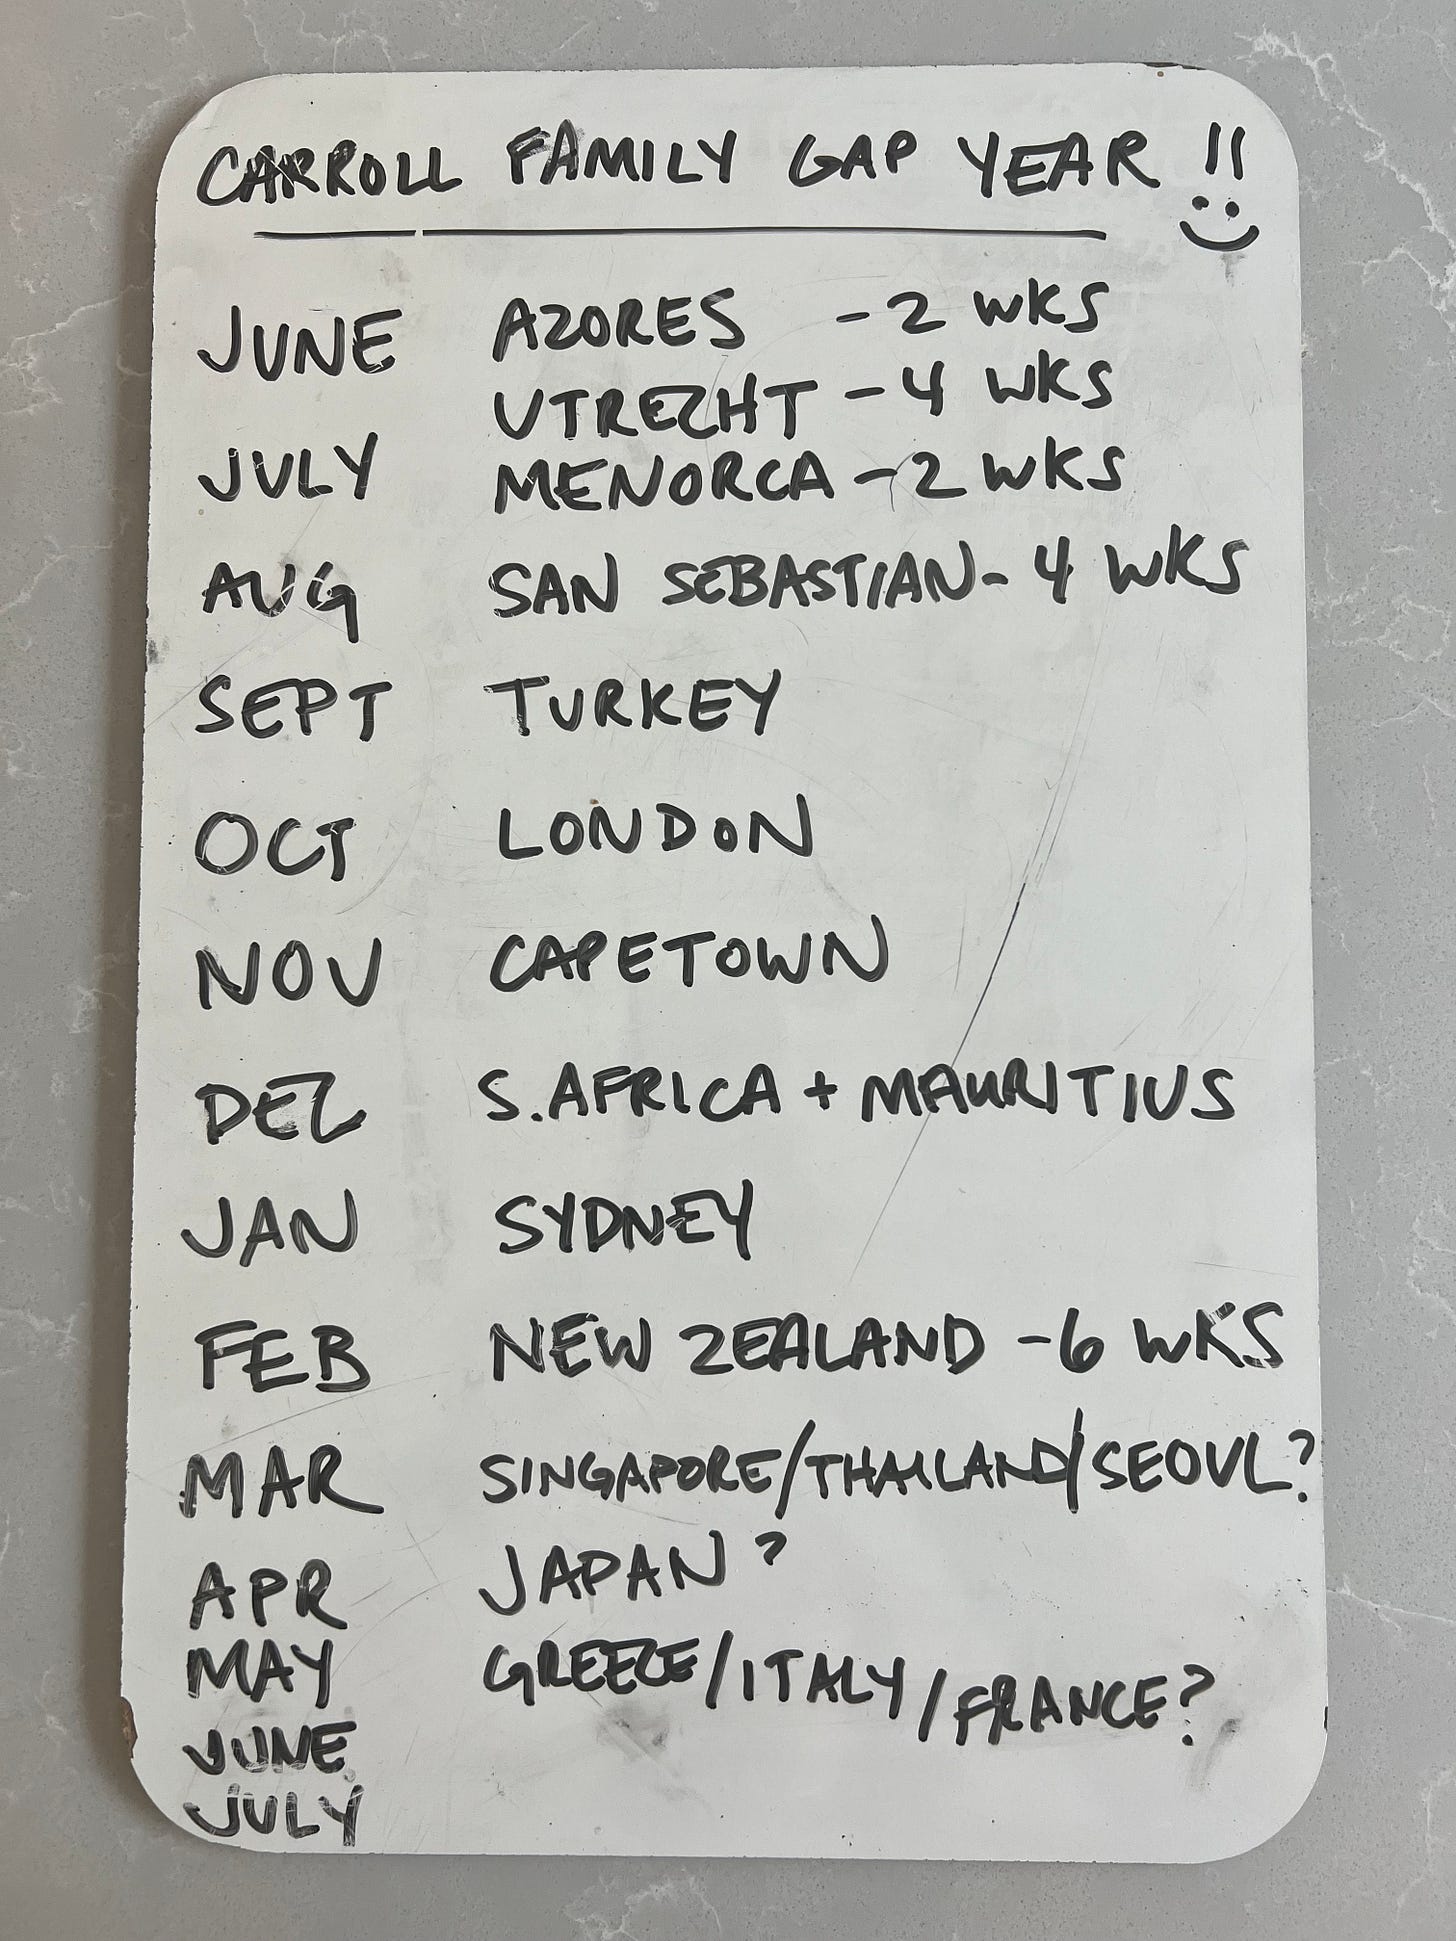 CARROLL FAMILY GAP YEAR !!
JUNE AZORES - 2 WKS
UTRECHT - 4 WKS
JULY MENORCA - 2 WKS
AUG SAN SEBASTIAN - 4 WKS
SEPT TURKEY
OCT LONDON
NOV CAPETOWN
DEC S. AFRICA + MAURITIUS
JAN SYDNEY
FEB NEW ZEALAND - 6 WKS
MAR SINGAPORE/THAILAND/SEOUL?
APR JAPAN?
MAY GREECE/ITALY/FRANCE?
JUNE
JULY